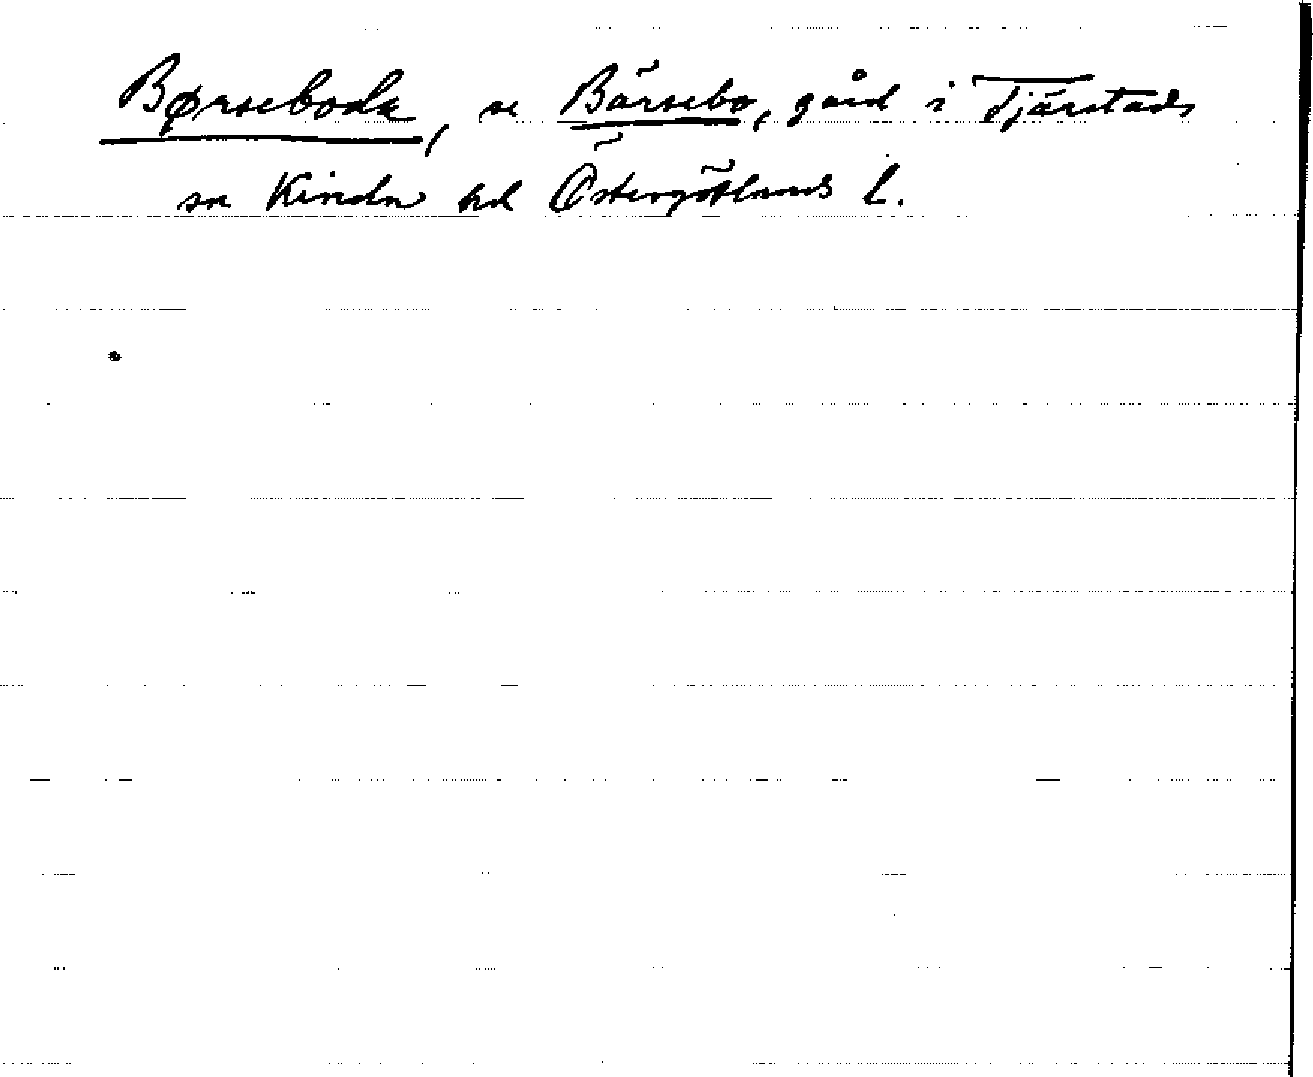 Børsebodæ, se Bärsebo, gård i Tjärstads
sn Kinda hd Östergötlands l.